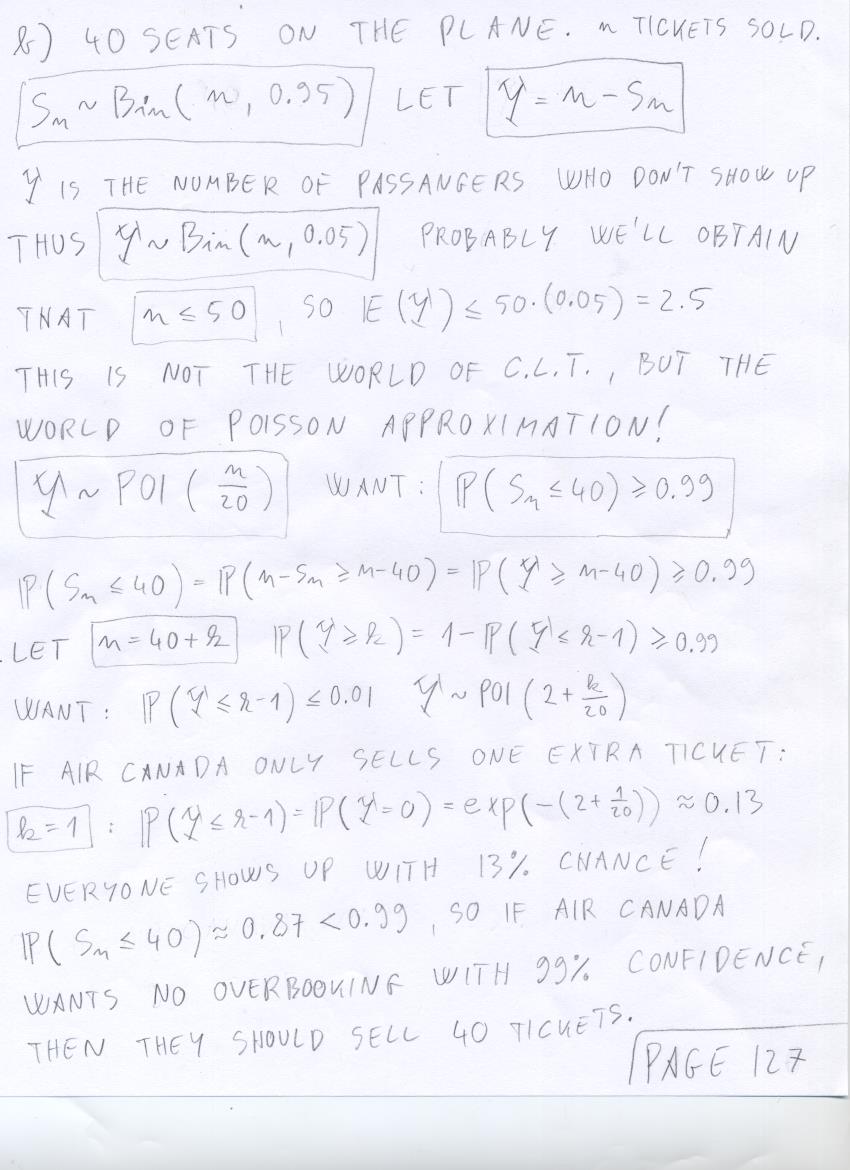 b) 40 SEATS ON THE PLANE. n TICKETS SOLD.
Sn ~ Bin(n, 0.95) LET Y = n - Sn
Y IS THE NUMBER OF PASSANGERS WHO DON'T SHOW UP
THUS Y ~ Bin(n, 0.05) PROBABLY WE'LL OBTAIN
THAT n ≤ 50, SO E(Y) ≤ 50·(0.05) = 2.5
THIS IS NOT THE WORLD OF C.L.T., BUT THE
WORLD OF POISSON APPROXIMATION!
Y ~ POI(n/20) WANT: P(Sn ≤ 40) ≥ 0.99
P(Sn ≤ 40) = P(n-Sn ≥ n-40) = P(Y ≥ n-40) ≥ 0.99
LET n = 40+k P(Y ≥ k) = 1 - P(Y ≤ k-1) ≥ 0.99
WANT: P(Y ≤ k-1) ≤ 0.01 Y ~ POI(2 + k/20)
IF AIR CANADA ONLY SELLS ONE EXTRA TICKET:
k = 1 : P(Y ≤ k-1) = P(Y = 0) = exp(-(2 + 1/20)) ≈ 0.13
EVERYONE SHOWS UP WITH 13% CHANCE!
P(Sn ≤ 40) ≈ 0.87 < 0.99, SO IF AIR CANADA
WANTS NO OVERBOOKING WITH 99% CONFIDENCE,
THEN THEY SHOULD SELL 40 TICKETS.
PAGE 127